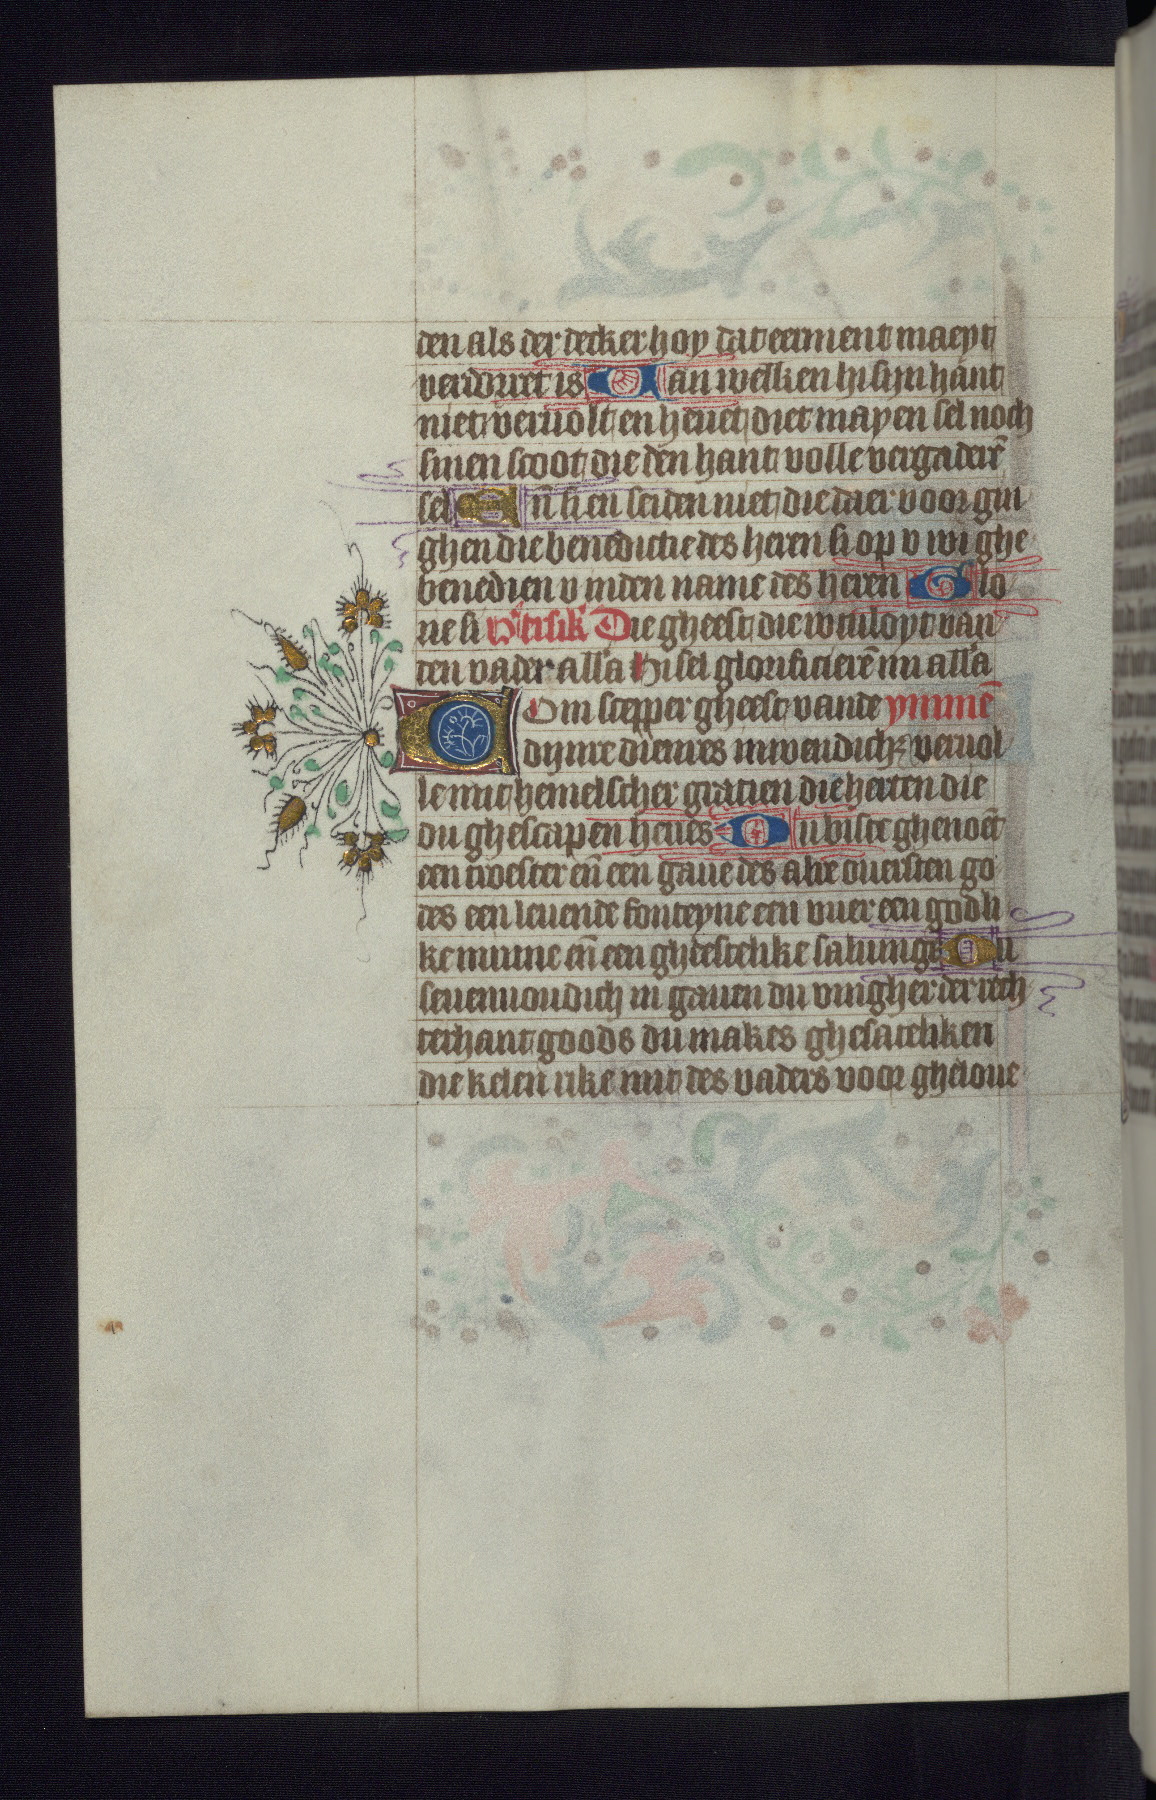 den als der decker hoy dat eerment maeyt
verdorret is Uan welken hi sijn hant
niet veruolt en heuet diet mayen sel noch
sinen scoot die den hant volle vergaderē
sel Eñ si en seiden niet die daer voor gin
ghen die benedictie des heren si op v wi ghe
benedien v inden name des heren Glo
rie si Versik' Die gheest die wtuloyt van
den vader all'a Hi sel glorificierē mi all'a
Com scepper gheest vande ymme
dijnre dienres inwendich₂ veruol
le mit hemelscher gratien die herten die
du ghescapen heues Du biste ghenoēt
een troester eñ een gaue des alre ouersten go
des een leuende fonteyne een vuer een godli
ke minne eñ een gheestelike saluinge Du
seuenuoudich in gauen du vingher der rech
terhant goods du makes ghesateliken
die kelen rike mit des vaders voor gheloue